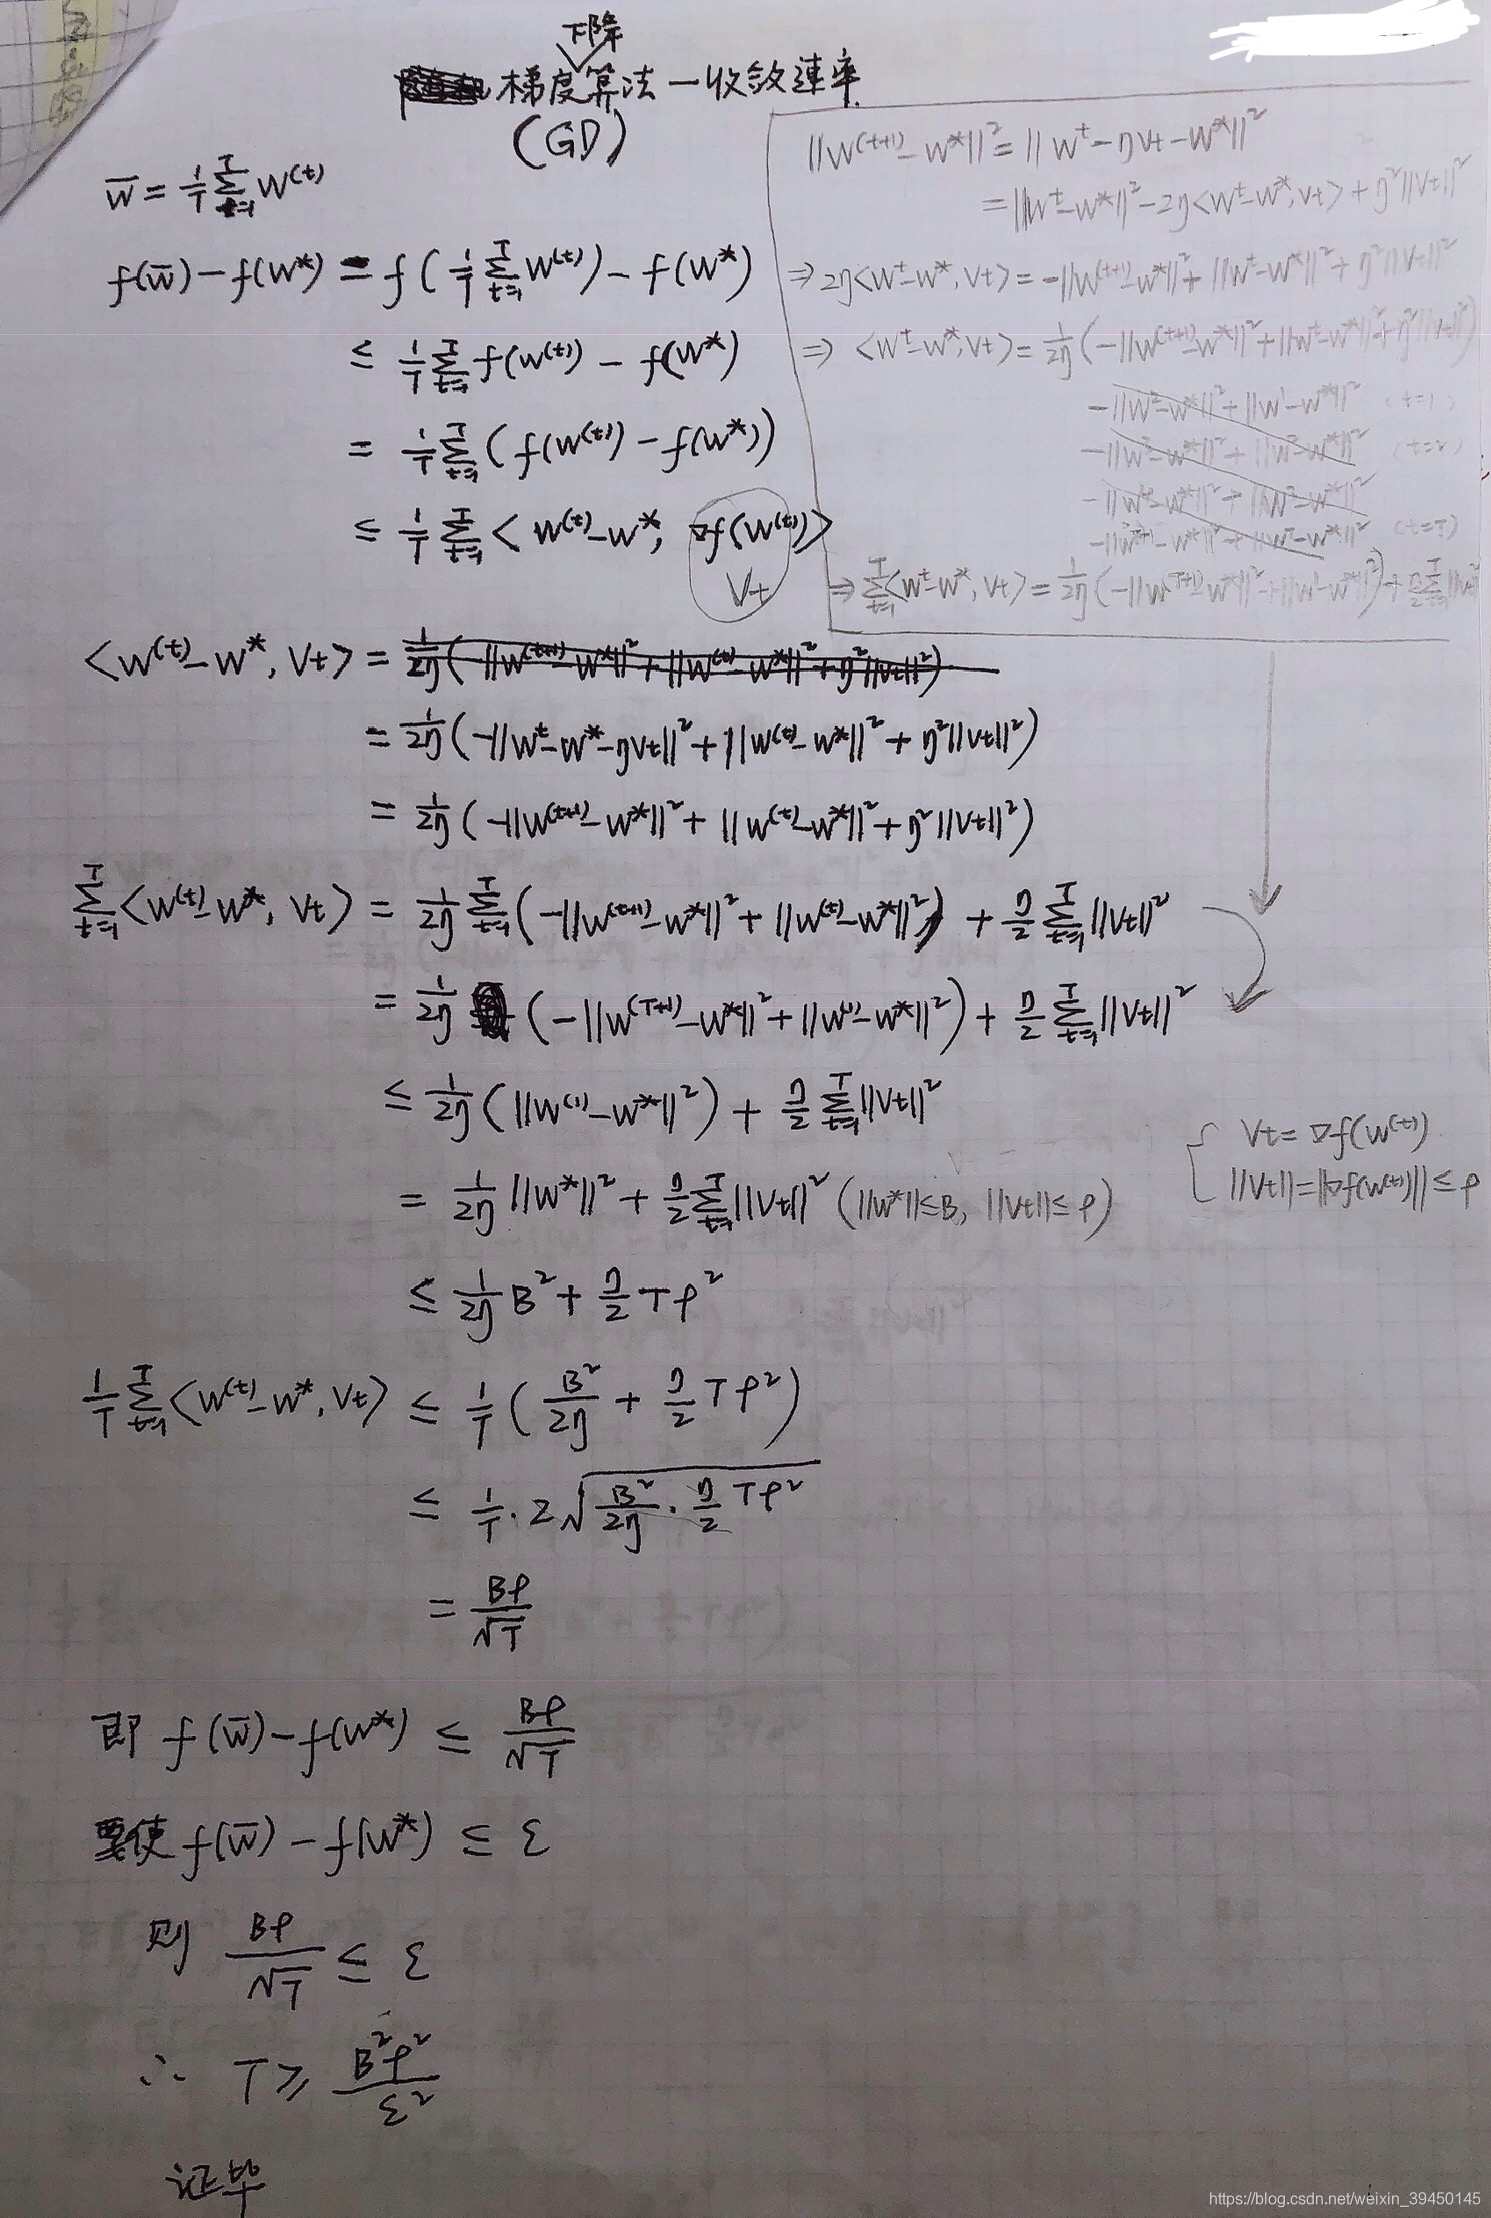 下降
梯度算法—收敛速率
(GD)
w̅ = 1/T Σ_{t=1}^{T} w^(t)
f(w̅) − f(w*) = f(1/T Σ_{t=1}^{T} w^(t)) − f(w*)
≤ 1/T Σ_{t=1}^{T} f(w^(t)) − f(w*)
= 1/T Σ_{t=1}^{T} (f(w^(t)) − f(w*))
≤ 1/T Σ_{t=1}^{T} < w^(t) − w*, ∇f(w^(t)) >
Vt
||w^(t+1) − w*||² = ||w^t − ηVt − w*||²
= ||w^t − w*||² − 2η<w^t − w*, Vt> + η²||Vt||²
⇒ 2η<w^t − w*, Vt> = −||w^(t+1) − w*||² + ||w^t − w*||² + η²||Vt||²
⇒ <w^t − w*, Vt> = 1/2η (−||w^(t+1) − w*||² + ||w^t − w*||² + η²||Vt||²)
−||w² − w*||² + ||w¹ − w*||² (t=1)
−||w³ − w*||² + ||w² − w*||² (t=2)
−||w⁴ − w*||² + ||w³ − w*||²
−||w^{T+1} − w*||² + ||w^T − w*||² (t=T)
⇒ Σ_{t=1}^{T} <w^t − w*, Vt> = 1/2η (−||w^(T+1) − w*||² + ||w¹ − w*||²) + η/2 Σ_{t=1}^{T}
<w^(t) − w*, Vt> = 1/2η (−||w^(t+1) − w*||² + ||w^(t) − w*||² + η²||Vt||²)
= 1/2η (−||w^t − w* − ηVt||² + ||w^(t) − w*||² + η²||Vt||²)
= 1/2η (−||w^(t+1) − w*||² + ||w^(t) − w*||² + η²||Vt||²)
Σ_{t=1}^{T} <w^(t) − w*, Vt> = 1/2η Σ_{t=1}^{T} (−||w^(t+1) − w*||² + ||w^(t) − w*||²) + η/2 Σ_{t=1}^{T} ||Vt||²
= 1/2η (−||w^(T+1) − w*||² + ||w^(1) − w*||²) + η/2 Σ_{t=1}^{T} ||Vt||²
≤ 1/2η (||w^(1) − w*||²) + η/2 Σ_{t=1}^{T} ||Vt||²
= 1/2η ||w*||² + η/2 Σ_{t=1}^{T} ||Vt||² (||w*|| ≤ B, ||Vt|| ≤ ρ)
{ Vt = ∇f(w^(t))
||Vt|| = ||∇f(w^(t))|| ≤ ρ
≤ 1/2η B² + η/2 Tρ²
1/T Σ_{t=1}^{T} <w^(t) − w*, Vt> ≤ 1/T (B²/2η + η/2 Tρ²)
≤ 1/T · 2√(B²/2η · η/2 Tρ²)
= Bρ/√T
即 f(w̅) − f(w*) ≤ Bρ/√T
要使 f(w̅) − f(w*) ≤ ε
则 Bρ/√T ≤ ε
∴ T ≥ B²ρ²/ε²
证毕
https://blog.csdn.net/weixin_39450145